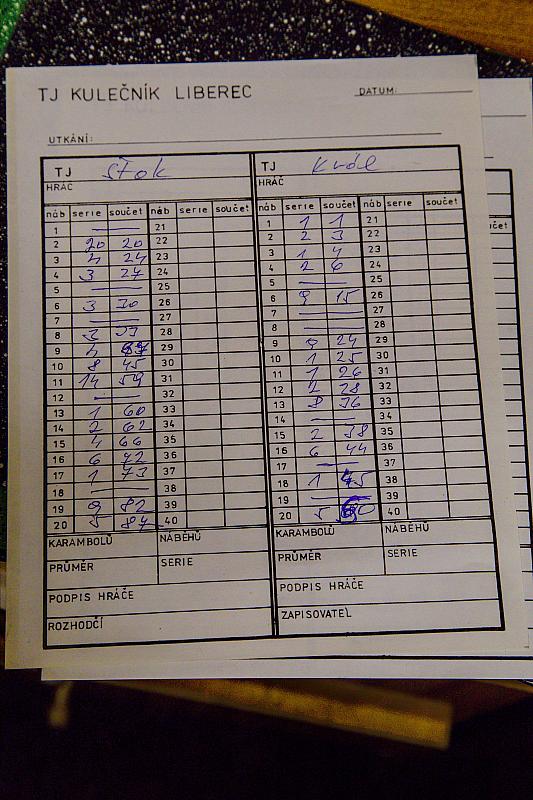 TJ KULEČNÍK LIBEREC DATUM:
UTKÁNÍ:
TJ Štok TJ Král
HRÁČ HRÁČ
náb serie součet náb serie součet náb serie součet náb serie součet
1 — 21 1 1 1 21
2 20 20 22 2 2 3 22
3 4 24 23 3 1 4 23
4 3 27 24 4 2 6 24
5 — 25 5 — 25
6 3 30 26 6 9 15 26
7 — 27 7 — 27
8 3 33 28 8 — 28
9 4 37 29 9 9 24 29
10 8 45 30 10 1 25 30
11 14 59 31 11 1 26 31
12 — 32 12 2 28 32
13 1 60 33 13 8 36 33
14 2 62 34 14 — 34
15 4 66 35 15 2 38 35
16 6 72 36 16 6 44 36
17 1 73 37 17 — 37
18 — 38 18 1 45 38
19 9 82 39 19 — 39
20 5 87 40 20 5 50 40
KARAMBOLŮ NÁBĚHŮ KARAMBOLŮ NÁBĚHŮ
PRŮMĚR SERIE PRŮMĚR SERIE
PODPIS HRÁČE PODPIS HRÁČE
ROZHODČÍ ZAPISOVATEL